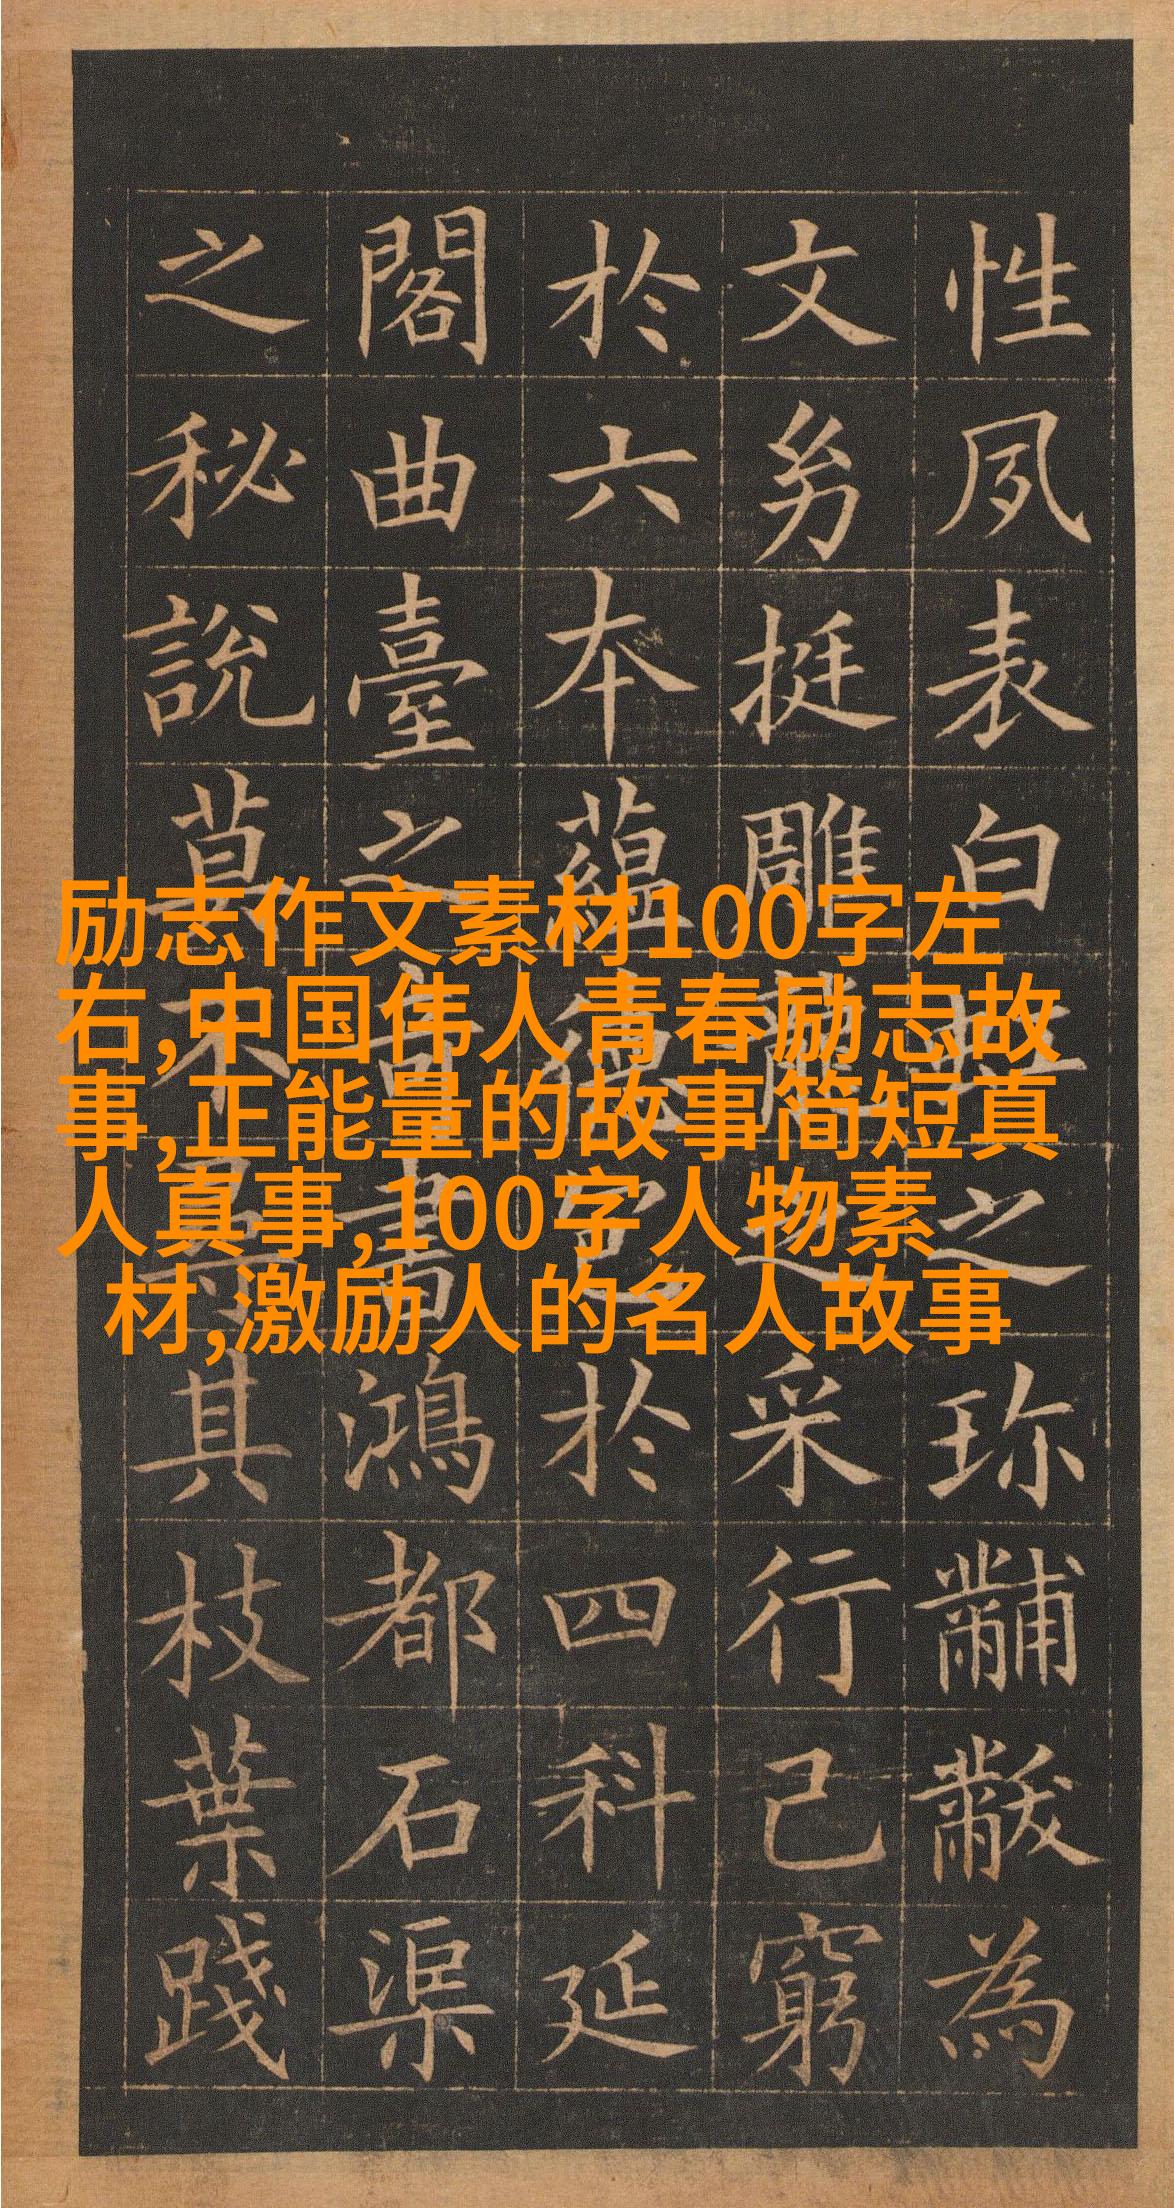 性夙表白珪之珍黼黻為
文幼挺雕龍之采行己窮
於六本蘊德包於四科延
閣曲臺之奇書鴻都石渠
之秘說莫不尋其枝葉踐
励志作文素材100字左
右,中国伟人青春励志故
事,正能量的故事简短真
人真事,100字人物素
材,激励人的名人故事